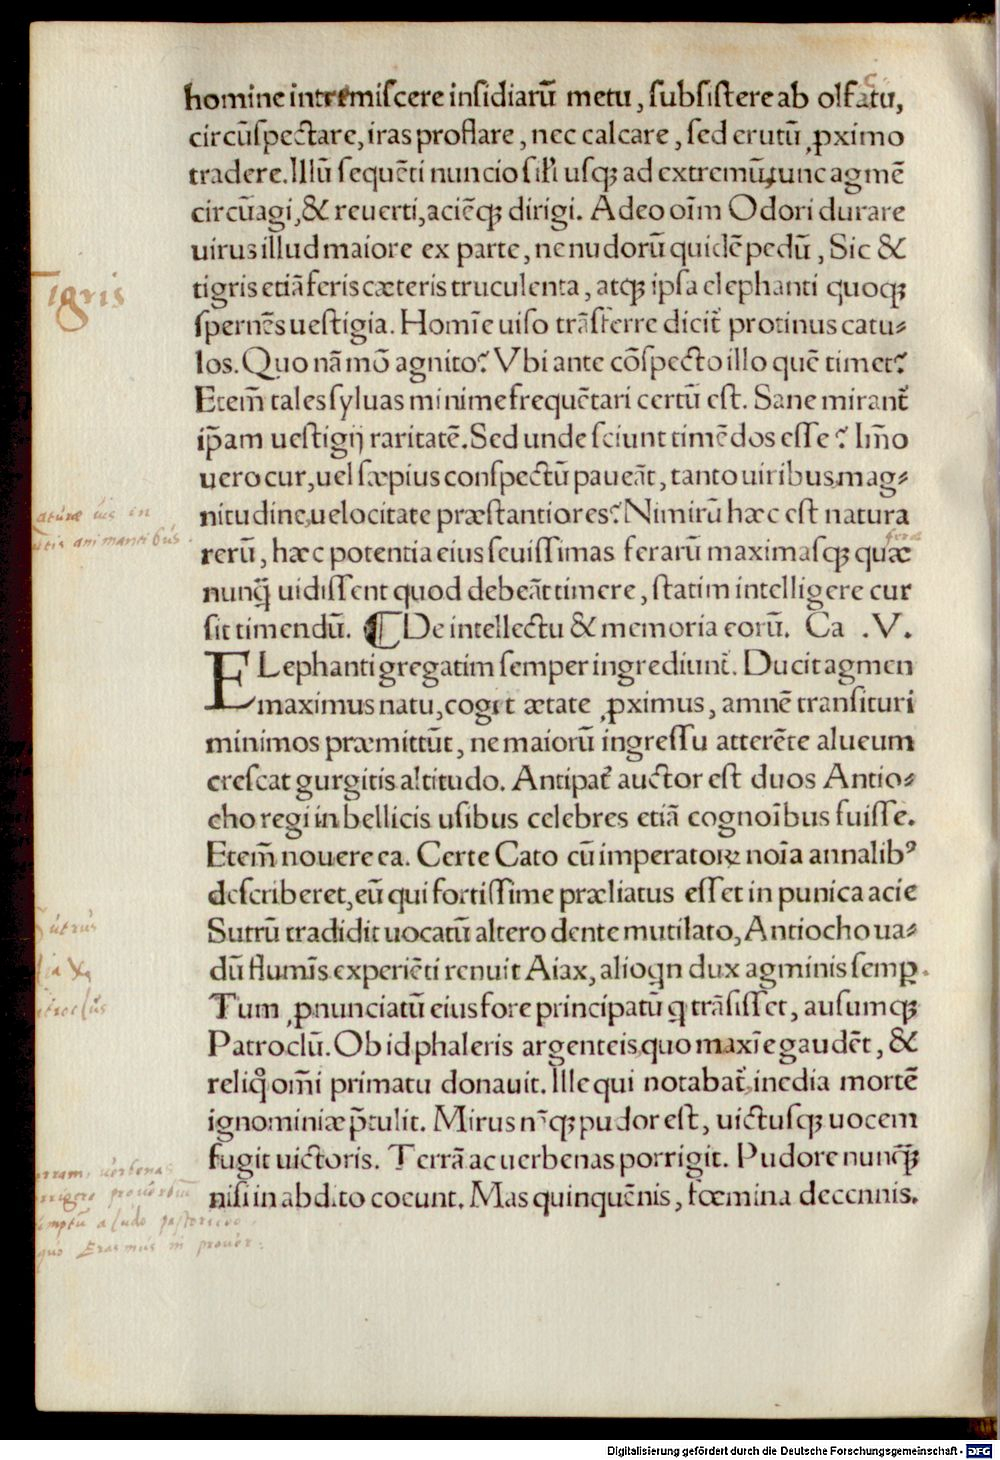 homine intremiscere insidiarū metu, subsistere ab olfatu,
circūspectare, iras proflare, nec calcare, sed erutū ꝓximo
tradere. Illū sequēti nuncio sił'i usqꝫ ad extremū, tunc agmē
circūagi, & reuerti, aciēqꝫ dirigi. Adeo oīm Odori durare
uirus illud maiore ex parte, ne nudorū quidē pedū, Sic &
Tigris
tigris etiā feris cæteris truculenta, atqꝫ ipsa elephanti quoqꝫ
spernēs uestigia. Homīe uiso trāsferre dicit᷑ protinus catu⸗
los. Quo nā mō agnito? Vbi ante cōspecto illo quē timet?
Etem̄ tales syluas minime frequētari certū est. Sane mirant᷑
ip̄am uestigij raritatē. Sed unde sciunt timēdos esse? Im̄o
uero cur, uel sæpius conspectū paueāt, tanto uiribus, mag⸗
nitudine, uelocitate præstantiores? Nimirū hæc est natura
rerū, hæc potentia eius seuissimas ferarū maximasqꝫ quæ
nunq̄ uidissent quod debeāt timere, statim intelligere cur
sit timendū. ¶ De intellectu & memoria eorū. Ca .V.
ELephanti gregatim semper ingrediunt᷑. Ducit agmen
maximus natu, cogit ætate ꝓximus, amnē transituri
minimos præmittūt, ne maiorū ingressu atterēte alueum
crescat gurgitis altitudo. Antipat᷑ auctor est duos Antio⸗
cho regi in bellicis usibus celebres etiā cognoībus fuisse.
Etem̄ nouere ea. Certe Cato cū imperatoꝝ noīa annalibꝰ
describeret, eū qui fortissime præliatus esset in punica acie
Sutrū tradidit uocatū altero dente mutilato, Antiocho ua⸗
dū flumīs experiēti renuit Aiax, alioqn dux agminis semꝑ.
Tum ꝓnunciatū eius fore principatū q trāsisset, ausumqꝫ
Patroclū. Ob id phaleris argenteis, quo maxīe gaudēt, &
reliq̊ om̄i primatu donauit. Ille qui notabat᷑, inedia mortē
ignominiæ p̄tulit. Mirus nāqꝫ pudor est, uictusqꝫ uocem
fugit uictoris. Terrā ac uerbenas porrigit. Pudore nunq̄ꝫ
nisi in abdito coeunt. Mas quinquēnis, fœmina decennis.
Digitalisierung gefördert durch die Deutsche Forschungsgemeinschaft - DFG